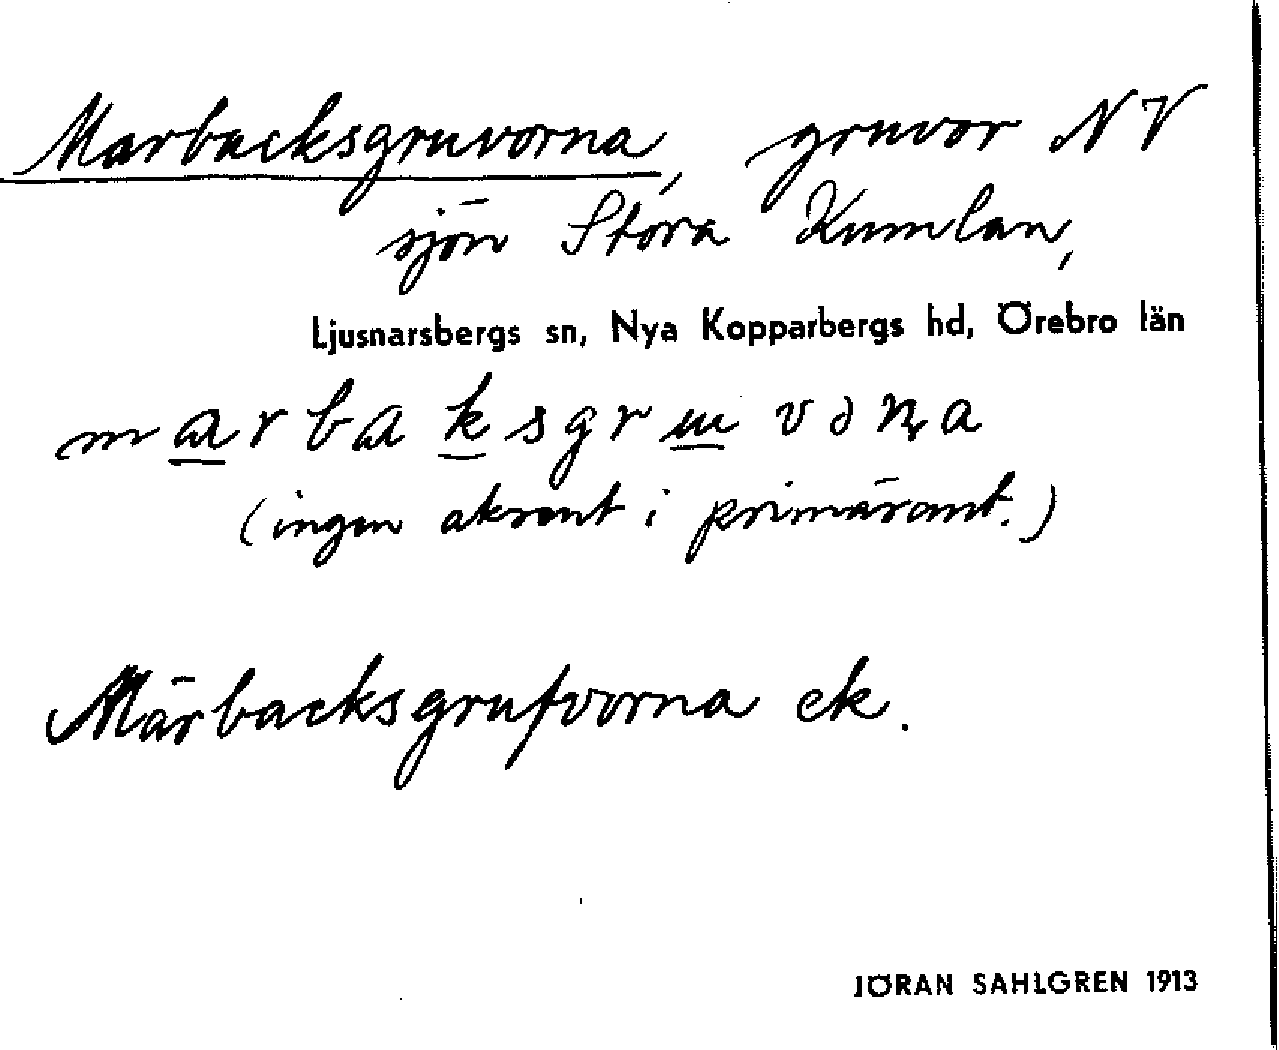 Marbacksgruvorna, gruvor NV
sjön Stora Kumlan,
Ljusnarsbergs sn, Nya Kopparbergs hd, Örebro län
marbaksgruvoṇa
(ingen akcent i primäramt.)
Märbacksgrufvorna ek.
JÖRAN SAHLGREN 1913